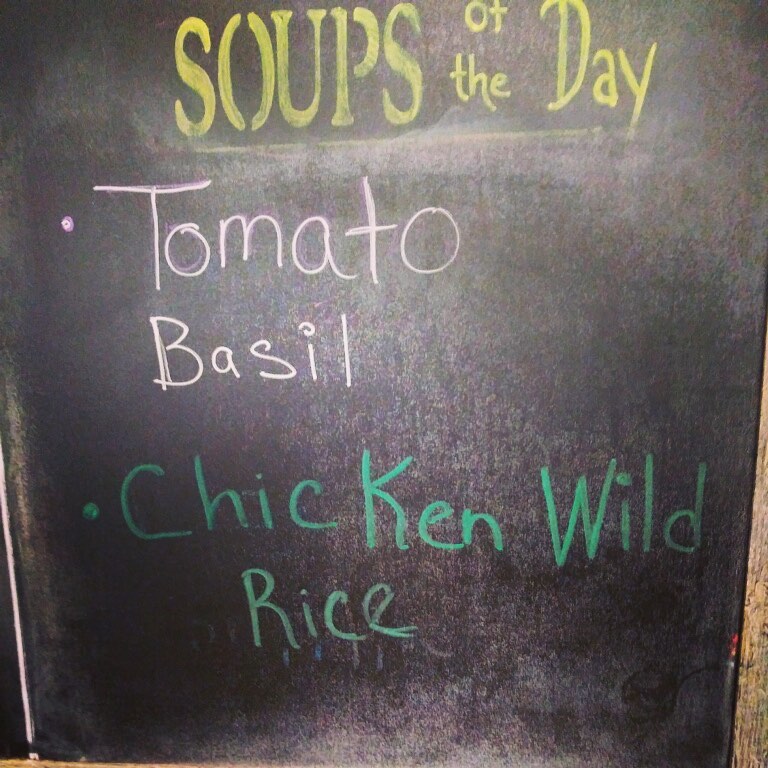 SOUPS of the Day
• Tomato
Basil
• Chicken Wild
Rice